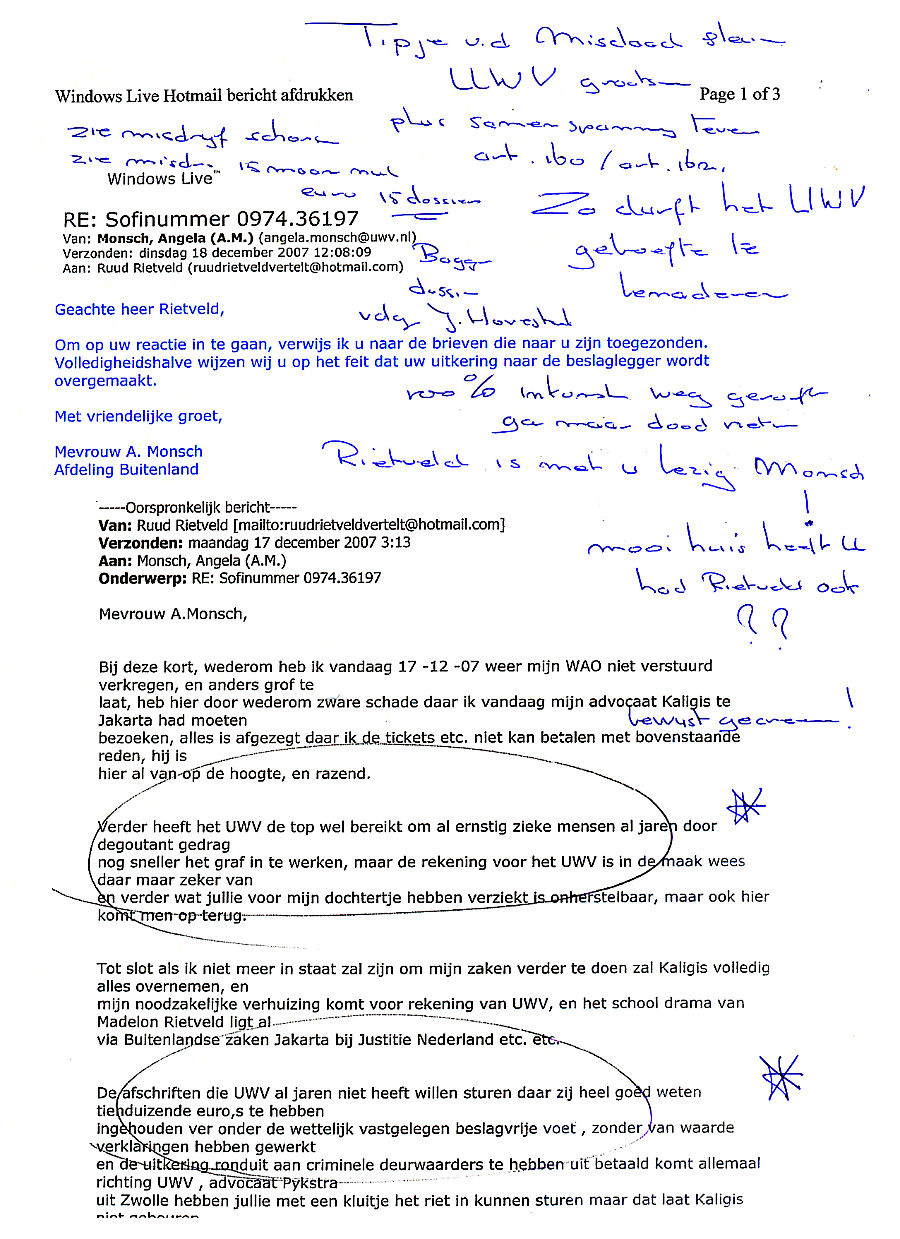 Tipje v.d Misdaad
UWV
Windows Live Hotmail bericht afdrukken
Page 1 of 3
zie misdryf
plus samenspanning Teven
art. 160 / art. 162,
zie misd. 15 maan nul
Windows Live™
euro 15 dossier
Zo durft het UWV
RE: Sofinummer 0974.36197
Van: Monsch, Angela (A.M.) (angela.monsch@uwv.nl)
Verzonden: dinsdag 18 december 2007 12:08:09
Aan: Ruud Rietveld (ruudrietveldvertelt@hotmail.com)
te
benaderen
Geachte heer Rietveld,
J. Hovestad
Om op uw reactie in te gaan, verwijs ik u naar de brieven die naar u zijn toegezonden.
Volledigheidshalve wijzen wij u op het feit dat uw uitkering naar de beslaglegger wordt
overgemaakt.
100% inkomst weg geroofd
Met vriendelijke groet,
ga maar dood
Mevrouw A. Monsch
Afdeling Buitenland
Rietveld is met u bezig Monsch
!
-----Oorspronkelijk bericht-----
Van: Ruud Rietveld [mailto:ruudrietveldvertelt@hotmail.com]
Verzonden: maandag 17 december 2007 3:13
Aan: Monsch, Angela (A.M.)
Onderwerp: RE: Sofinummer 0974.36197
mooi huis heeft U
had Rietveld ook
??
Mevrouw A.Monsch,
Bij deze kort, wederom heb ik vandaag 17 -12 -07 weer mijn WAO niet verstuurd
verkregen, en anders grof te
laat, heb hier door wederom zware schade daar ik vandaag mijn advocaat Kaligis te
Jakarta had moeten
bewust !
bezoeken, alles is afgezegt daar ik de tickets etc. niet kan betalen met bovenstaande
reden, hij is
hier al van op de hoogte, en razend.
Verder heeft het UWV de top wel bereikt om al ernstig zieke mensen al jaren door
degoutant gedrag
nog sneller het graf in te werken, maar de rekening voor het UWV is in de maak wees
daar maar zeker van
en verder wat jullie voor mijn dochtertje hebben verziekt is onherstelbaar, maar ook hier
komt men op terug.
Tot slot als ik niet meer in staat zal zijn om mijn zaken verder te doen zal Kaligis volledig
alles overnemen, en
mijn noodzakelijke verhuizing komt voor rekening van UWV, en het school drama van
Madelon Rietveld ligt al
via Buitenlandse zaken Jakarta bij Justitie Nederland etc. etc.
De afschriften die UWV al jaren niet heeft willen sturen daar zij heel goed weten
tienduizende euro,s te hebben
ingehouden ver onder de wettelijk vastgelegen beslagvrije voet , zonder van waarde
verklaringen hebben gewerkt
en de uitkering ronduit aan criminele deurwaarders te hebben uit betaald komt allemaal
richting UWV , advocaat Pykstra
uit Zwolle hebben jullie met een kluitje het riet in kunnen sturen maar dat laat Kaligis
niet gebeuren